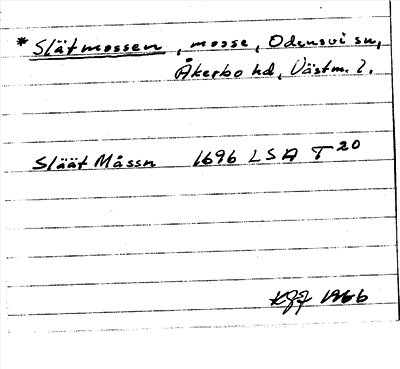 * Slätmossen, mosse, Odensvi sn,
Åkerbo hd, Västm. l.
Släät Måssn 1696 LSA T 20
1966